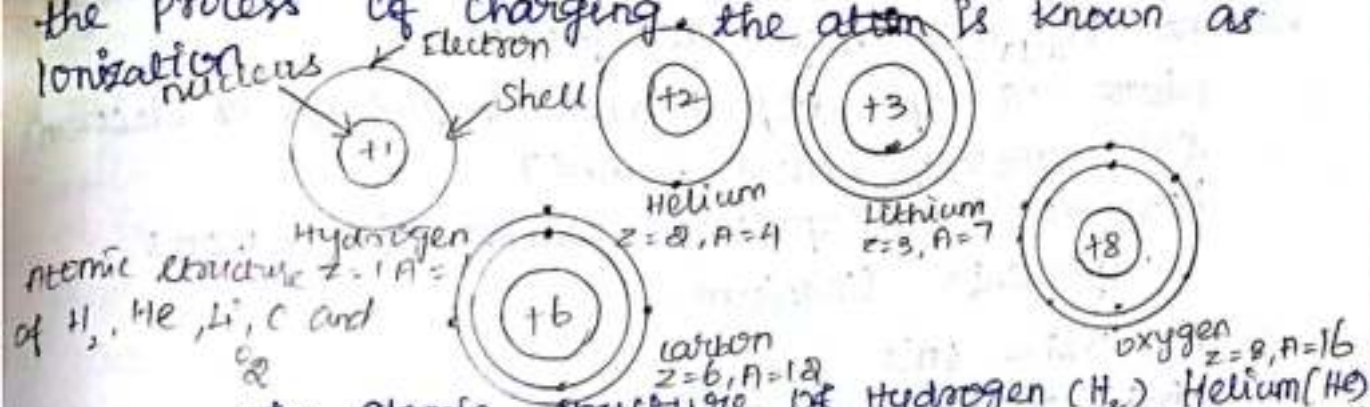 the process of charging the atom is known as
Ionization
nucleus
Electron
Shell
+1
Hydrogen
z = 1 A =
+2
Helium
z = 2, A = 4
+3
Lithium
z = 3, A = 7
Atomic structure
of H2, He, Li, C and
O2
+6
carbon
z = 6, A = 12
+8
oxygen
z = 8, A = 16
Atomic structure of Hydrogen (H2) Helium (He)